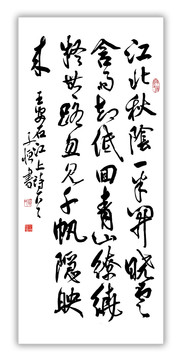 江北秋陰一半開曉雲
含雨却低回青山繚繞
疑無路忽見千帆隱映
来
王安石江上詩
書